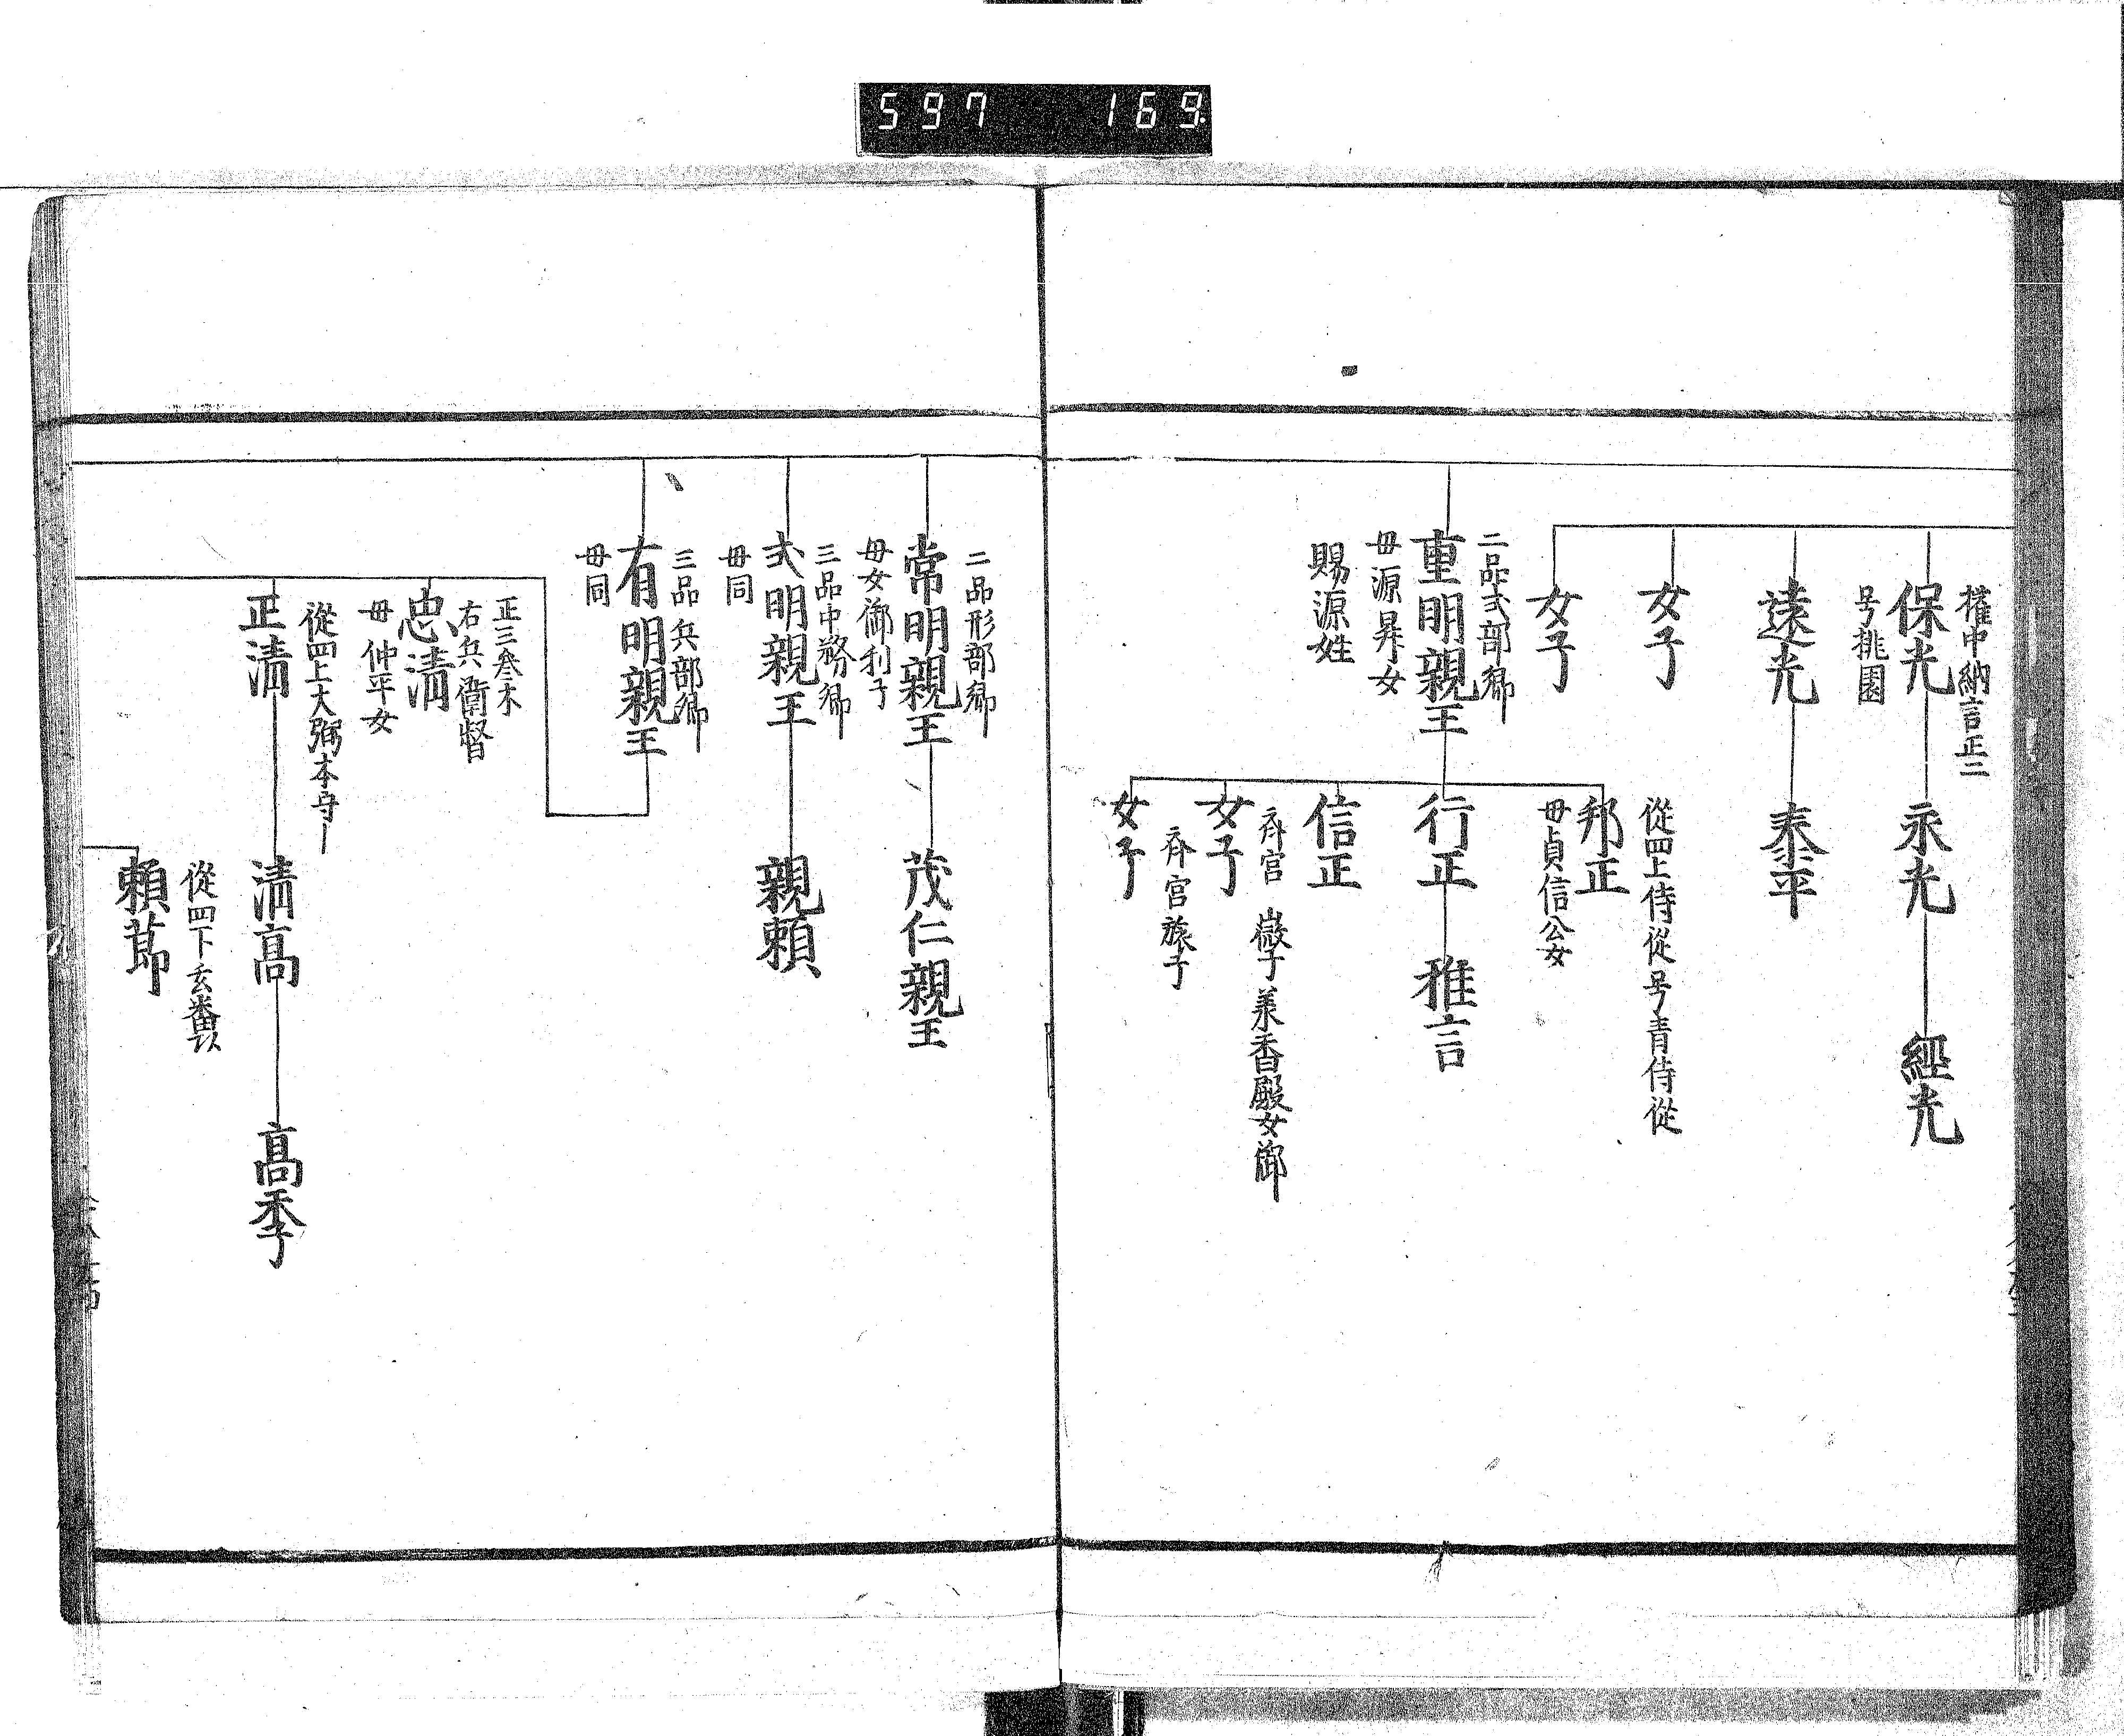 597 169
權中納言正二
保光
号桃園
永光
經光
遠光
泰平
女子
女子
二品式部卿
重明親王
母源昇女
賜源姓
從四上侍從号青侍從
邦正
母貞信公女
行正
雅言
信正
斎宮 徽子 羕香殿女御
女子
斎宮旅子
女子
二品形部卿
常明親王
母女御利子
茂仁親王
三品中務卿
式明親王
母同
親頼
三品兵部卿
有明親王
母同
正三叅木
右兵衛督
忠清
母仲平女
從四上大弼本守
正清
清高
高季
從四下玄番頭
頼節